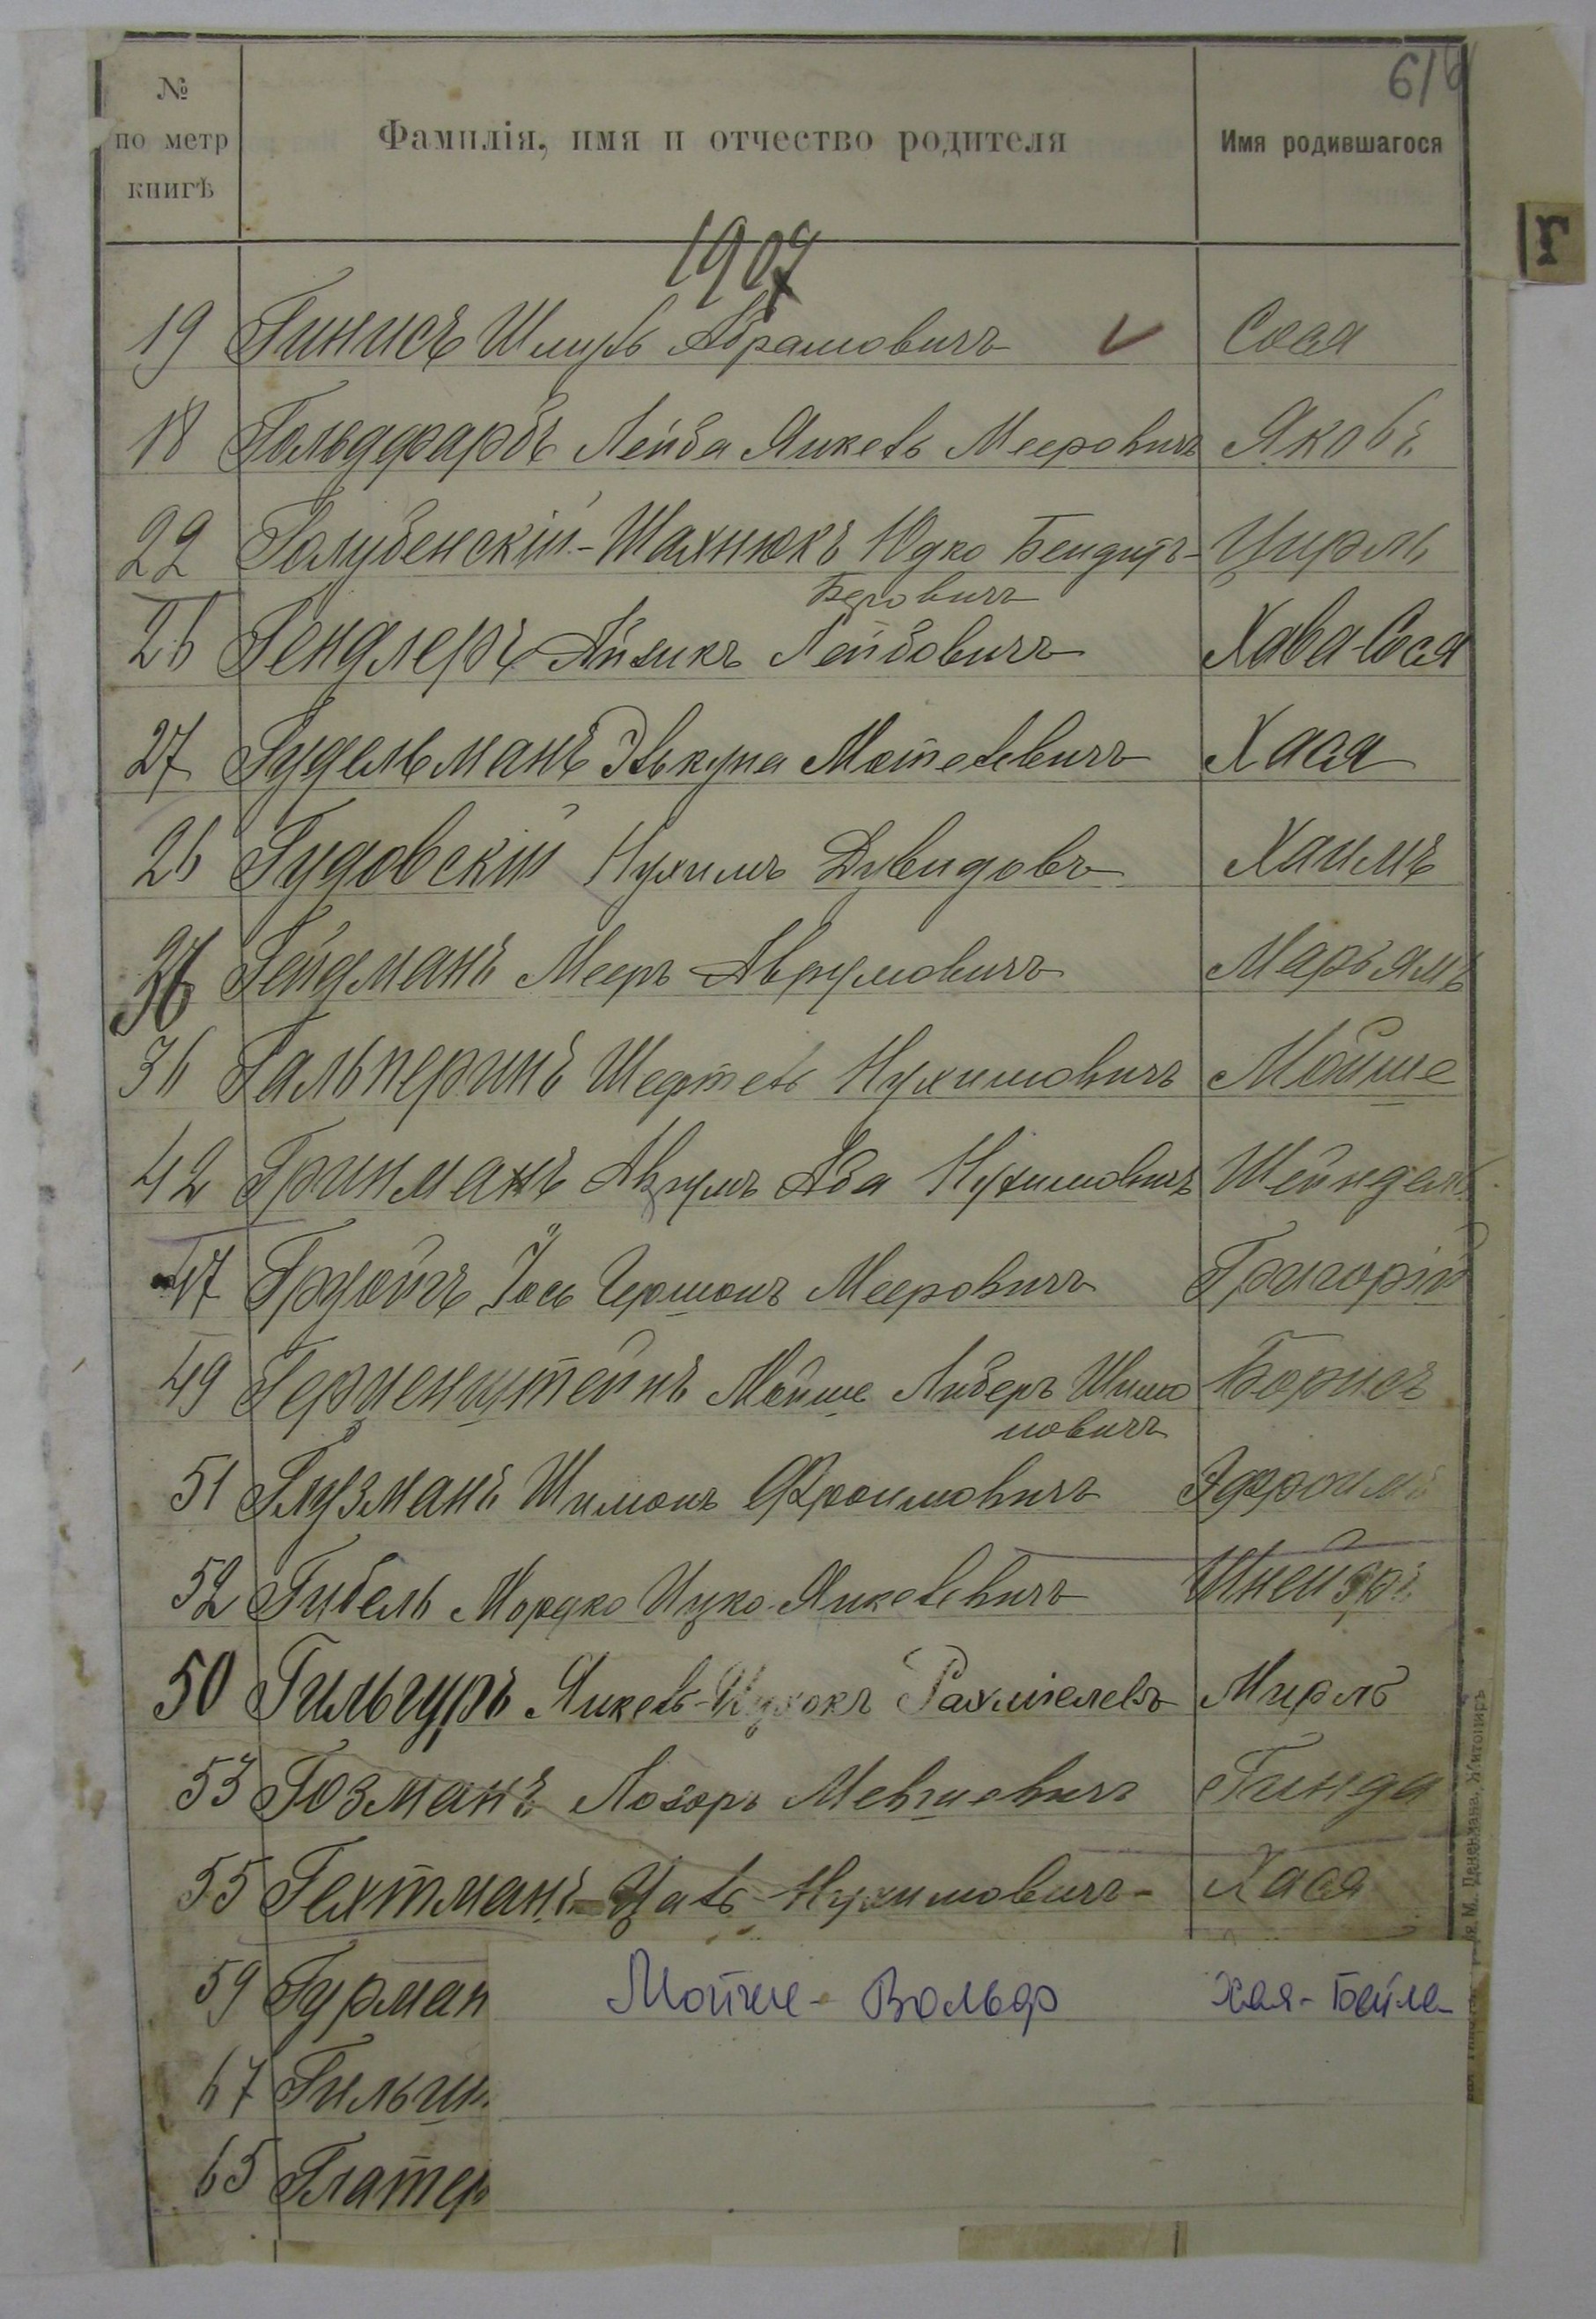 №
по метр
книгѣ
Фамилія, имя и отчество родителя
Имя родившагося
616
Г
1907
19 Гинисъ Шмуль Абрамовичъ Сося
18 Гольдфарбъ Лейба Янкель Мееровичъ Яковъ
22 Голубенскій-Шахнюкъ Юдко Бендитъ- Цирль
Беровичъ
26 Гендлеръ Айзикъ Лейбовичъ Хава-Сося
27 Гудельманъ Эль Мотелевичъ Хася
26 Гудовскій Нухимъ Дувидовъ Хаимъ
Гейдманъ Мееръ Аврумовичъ Марьямъ
36 Гальперинъ Шефтель Нухимовичъ Мойше
42 Гринманъ Аврумъ Аба Нухимовичъ Шейндель
47 Іось Гершонъ Мееровичъ Григорій
49 Герценштейнъ Мойше Либеръ Шимо
новичъ
Борисъ
51 Глузманъ Шимонъ Фроимовичъ Эфроимъ
52 Гибель Мордко Ицко-Янкелевичъ Шнейзръ
50 Гильгуръ Янкель-Ицхокъ Рахміелевъ Мирль
53 Гозманъ Лозоръ Гинда
55 Гехтманъ Цаль Нухимовичъ- Хася
59 Гурман Мойше-Вольф Хая-Бейла
67 Гильши
65 Глатер
М. Дененмана, Житомиръ